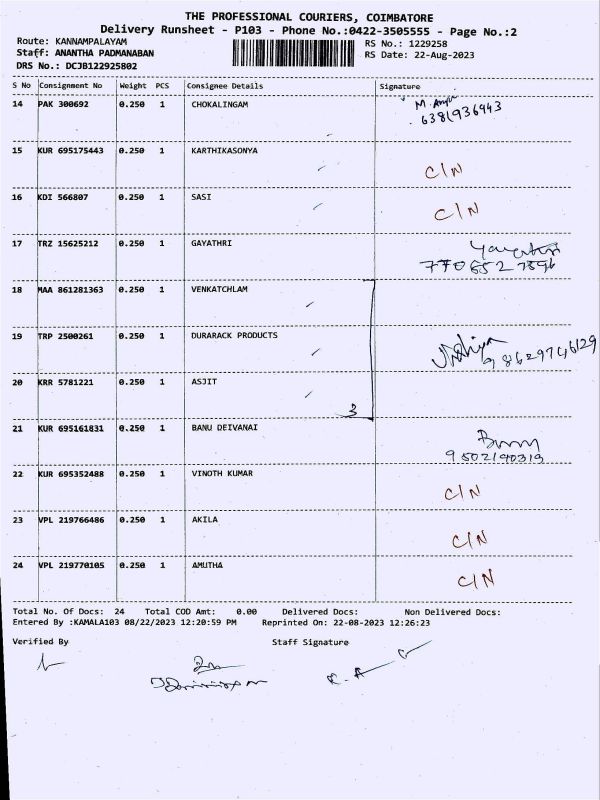 THE PROFESSIONAL COURIERS, COIMBATORE
Delivery Runsheet - P103 - Phone No.:0422-3505555 - Page No.:2
Route: KANNAMPALAYAM RS No.: 1229258
Staff: ANANTHA PADMANABAN RS Date: 22-Aug-2023
DRS No.: DCJB122925802
S No Consignment No Weight PCS Consignee Details Signature
14 PAK 300692 0.250 1 CHOKALINGAM M.
6381936943
15 KUR 695175443 0.250 1 KARTHIKASONYA
C/N
16 KDI 566807 0.250 1 SASI
C/N
17 TRZ 15625212 0.250 1 GAYATHRI Gayathri
7706527896
18 MAA 861281363 0.250 1 VENKATCHLAM
19 TRP 2500261 0.250 1 DURARACK PRODUCTS
98629746129
20 KRR 5781221 0.250 1 ASJIT
3
21 KUR 695161831 0.250 1 BANU DEIVANAI
9502190319
22 KUR 695352488 0.250 1 VINOTH KUMAR
C/N
23 VPL 219766486 0.250 1 AKILA
C/N
24 VPL 219770105 0.250 1 AMUTHA
C/N
Total No. Of Docs: 24 Total COD Amt: 0.00 Delivered Docs: Non Delivered Docs:
Entered By :KAMALA103 08/22/2023 12:20:59 PM Reprinted On: 22-08-2023 12:26:23
Verified By Staff Signature